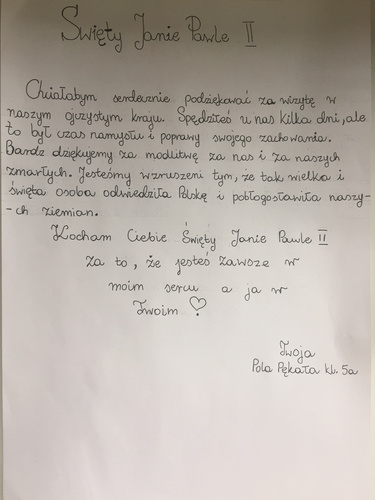 Święty Janie Pawle II
Chciałabym serdecznie podziękować za wizytę w
naszym ojczystym kraju. Spędziłeś u nas kilka dni, ale
to był czas namysłu i poprawy swojego zachowania.
Bardz dziękujemy za modlitwę za nas i za naszych
zmarłych. Jesteśmy wzruszeni tym, że tak wielka i
święta osoba odwiedziła Polskę i pobłogosławiła naszy-
-ch ziemian.
Kocham Ciebie Święty Janie Pawle II
za to, że jesteś zawsze w
moim sercu a ja w
Twoim ♡
Twoja
Pola Pękała kl. 5a